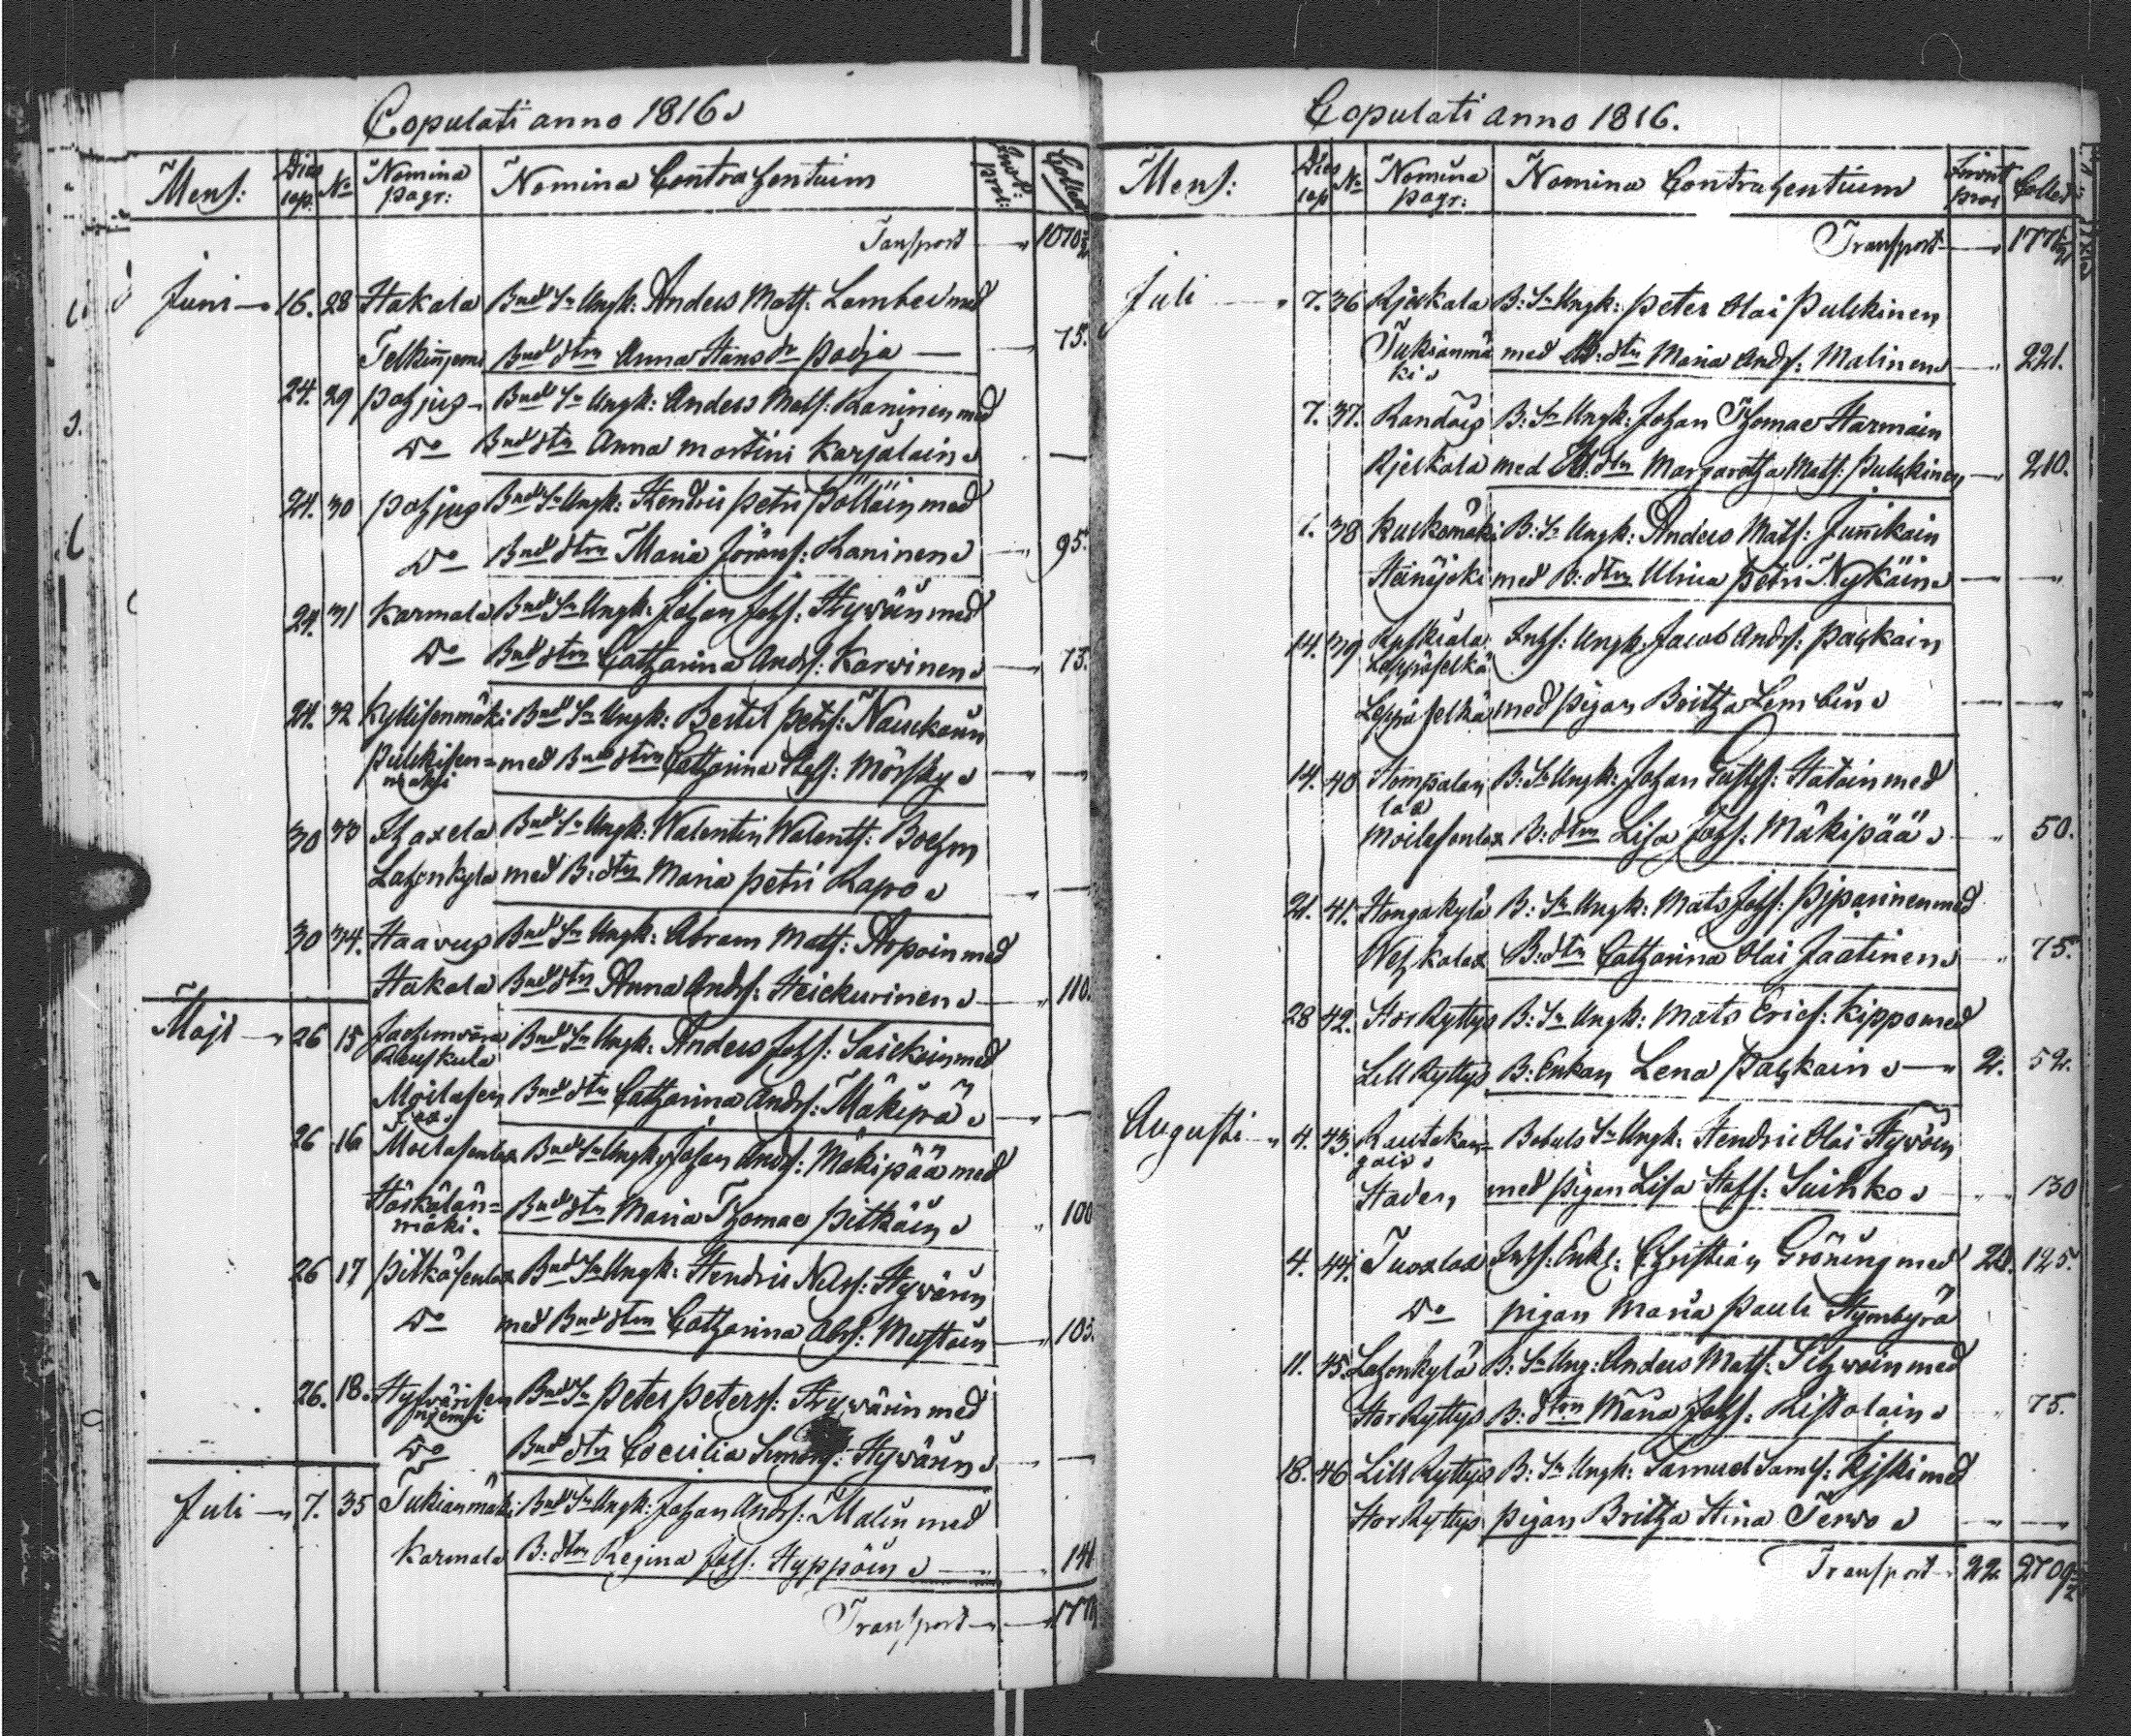 Copulati anno 1816
Mens: Dies cop: No Nomina pagr: Nomina Contrahentium Collect
Transport 1070
Juni 16. 28 Hakala Bnd Sn Ungk: Anders Mats: Lember med
Telkinjemi Bnd dtrn Anna Hans dr Padja 75.
24. 29 Pohjus Bnd Sn Ungk: Anders Mats: Kaninen med
Do Bnd dtrn Anna Martini Karjalain
24. 30 Pohjus Bnd Sn Ungk: Hendric Petri Pölläin med
Do Bnd dtrn Maria Jörans: Kaninen 95.
24. 31 Karmala Bnd Sn Ungk: Johan Johs: Hyväin med
Do Bnd dtrn Catharina Ands: Karvinen 75.
24. 32 Kyllisenmäki Bnd Sn Ungk: Bertil Petrs: Nauckarin
Pulckisen= mäki med Bnd dtrn Catharina Mörsky
30 33 Ihaxela Bnd Sn Ungk: Walentin Walents: Boehm
Lahenkylä med B: dtrn Maria Petri Rapo
30 34. Haavus Bnd Sn Ungk: Abram Mats: Arpoin med
Hakala Bnd dtrn Anna Ands: Heickurinen 110.
Maji 26 15 Bnd Sn Ungk: Anders Johs: Saickoin med
Moilasen lax Bnd dtrn Catharina Ands: Mäkipä
26 16 Moilasenlax Bnd Sn Ungk: Johan Ands: Mäkipää med
Häskälän= mäki. Bnd dtrn Maria Thomae Pitkäin 100
26 17 Pitkäsenlax Bnd Sn Ungk: Hendric Nils: Hyvärin
Do med Bnd dtrn Catharina Abrs: Mustoin 105.
26. 18. Hyfvärisen njemi Bnd Sn Peter Peters: Hyvärin med
Do Bnd dtrn Coecilia Simons: Hyvärin
Juli 7. 35 Tukianmäki Bnd Sn Ungk: Johan Ands: Malin med
Karmala B: dtrn Regina Johs: Hyppöin 141
Transport 1771
Copulati anno 1816.
Mens: Dies cop No Nomina pagr: Nomina Contrahentium Collect:
Transport 1771
Juli 7. 36 Kjeskala B: Sn Ungk: Peter Olai Pulckinen
Tukianmä ki med B: dtrn Maria Ands: Malinen 221.
7. 37. Randais B: Sn Ungk: Johan Thomae Harmain
Kjeskala med B: dtrn Margaretha Mats: Pulckinen 210.
1. 38 Kuckomäki B: Sn Ungk: Anders Mats: Junickain
Heinjoki med B: dtrn Ulrica Petri Nykäin
14. 39 Leppäselkä Inhs: Ungk: Jacob Ands: Paskain
Leppäselkä med Pigan Britha Lembin
14. 40 Hompalan lax B: Sn Ungk: Johan Gustfs: Hatoin med
Moilasenlax B: dtrn Lisa Johs: Mäkipää 50.
21. 41. Hongakylä B: Sn Ungk: Mats Johs: Pjparinen med
Weskalax B: dtrn Catharina Olai Jaatinen 75.
28 42. Stor Ryttys B: Sn Ungk: Mats Erics: Kippo med
Lill Ryttys B: Enkan Lena Paskain 2. 52.
Augusti 4. 43. Rautakan= gais Bobuls Sn Ungk: Hendric Olai Hyvöin
Staden med Pigan Lisa Staff: Suikko 130
4. 44. Tuoxlax Inhs: Enkl: Christian Gröning med 20. 125.
Do Pigan Maria Pauli Hymbyrä
11. 45. Lahenkylä B: Sn Ung: Anders Mats: Sihvoin med
Stor Ryttys B: dtrn Maria Johs: Ristolain 75.
18. 46 Lill Ryttys B: Sn Ungk: Samuel Samls: Kiski med
Stor Ryttys Pigan Britha Stina Tervo
Transport 22. 2709